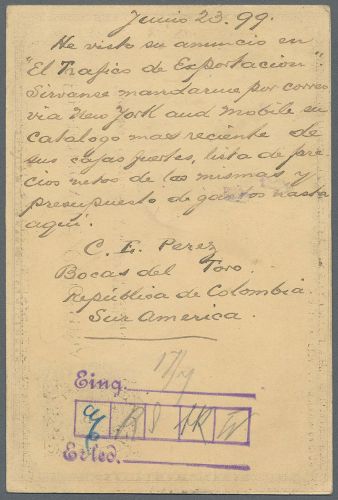 Junio 23. 99.
He visto su anuncio en
"El Trafico de Exportacion"
Sirvanse mandarme por correo
via New York and Mobile su
catalogo mas reciente de
sus cajas fuertes, lista de pre-
cios netos de las mismas y
presupuesto de gastos hasta
aqui.
C. E. Perez
Bocas del Toro
República de Colombia.
Sur America.
Eing.
Erled.